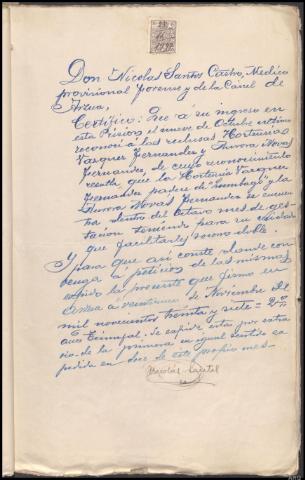 Don Nicolas Santos Castro, Medico
provisional forense y de la Carcel de
Arzua,
Certifico: Que a su ingreso en
esta Prisión, el nueve de Octubre ultimo
reconoci a las reclusas Hortensia
Vazquez Fernandez y Aurora Novas
Fernandez, de cuyo reconocimiento
resulta que la Hortensia Vazquez
Fernandez padece de "lumbago" y la
Aurora Novas Fernandez se encuen-
tra dentro del octavo mes de ges-
tación teniendo para su cuidado
que facultarles mano doble.
Y para que asi conste donde con-
venga a peticion de las mismas
expido la presente que firmo en
Arzua a veintiuno de Noviembre del
mil novecientos treinta y siete = 2º
Año Triunfal. Se expide esta por extra
vio de la primera en igual sentido ex-
pedida en doce de este propio mes-
Nicolas Santos